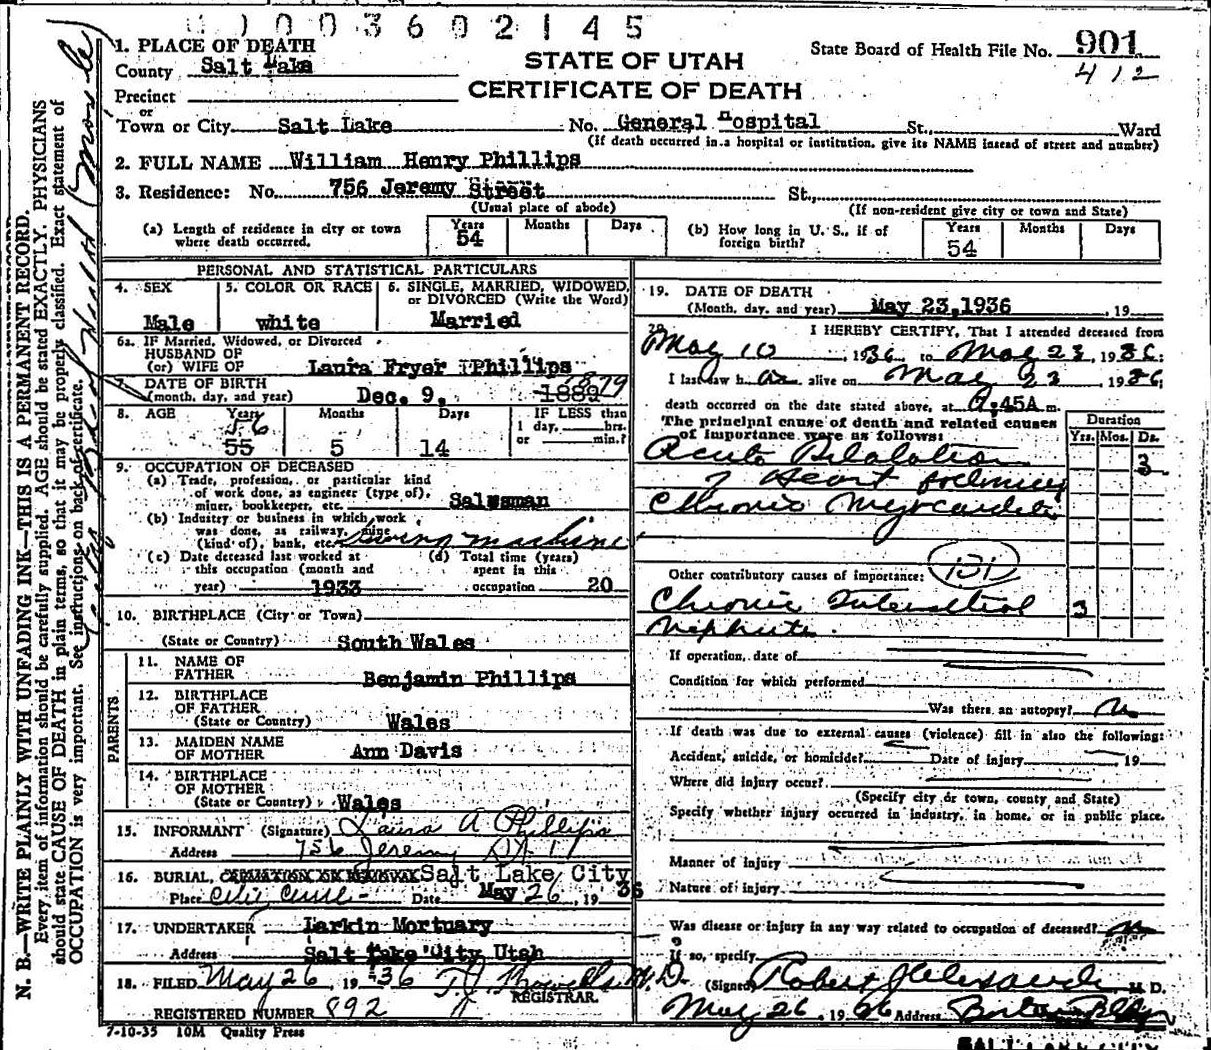 1003602145
1. PLACE OF DEATH
County Salt Lake
STATE OF UTAH
CERTIFICATE OF DEATH
State Board of Health File No. 901
412
Precinct
or
Town or City Salt Lake No. General Hospital St., Ward
(If death occurred in a hospital or institution, give its NAME instead of street and number)
2. FULL NAME William Henry Phillips
3. Residence: No. 756 Jeremy Street St.,
(Usual place of abode) (If non-resident give city or town and State)
(a) Length of residence in city or town where death occurred. Years 54 Months Days
(b) How long in U. S., if of foreign birth? Years 54 Months Days
PERSONAL AND STATISTICAL PARTICULARS
4. SEX Male
5. COLOR OR RACE white
6. SINGLE, MARRIED, WIDOWED, or DIVORCED (Write the Word) Married
6a. IF Married, Widowed, or Divorced
HUSBAND OF
(or) WIFE OF Laura Fryer Phillips
7. DATE OF BIRTH
(month, day, and year) Dec. 9, 1880 1879
8. AGE Years 55 56 Months 5 Days 14 IF LESS than 1 day, hrs. or min.?
9. OCCUPATION OF DECEASED
(a) Trade, profession, or particular kind
of work done, as engineer (type of),
miner, bookkeeper, etc. Salesman
(b) Industry or business in which work
was done, as railway, mine
(kind of), bank, etc. Sewing machine
(c) Date deceased last worked at
this occupation (month and
year) 1933
(d) Total time (years)
spent in this
occupation 20
10. BIRTHPLACE (City or Town)
(State or Country) South Wales
PARENTS
11. NAME OF
FATHER Benjamin Phillips
12. BIRTHPLACE
OF FATHER
(State or Country) Wales
13. MAIDEN NAME
OF MOTHER Ann Davis
14. BIRTHPLACE
OF MOTHER
(State or Country) Wales
15. INFORMANT (Signature) Laura A Phillips
Address 756 Jeremy St.
16. BURIAL, CREMATION OR REMOVAL Salt Lake City
Place Date May 26, 1936
17. UNDERTAKER Larkin Mortuary
Address Salt Lake City Utah
18. FILED May 26, 1936 M.D.
REGISTRAR.
REGISTERED NUMBER 892
7-10-35 10M Quality Press
19. DATE OF DEATH
(Month, day, and year) May 23, 1936, 19
20. I HEREBY CERTIFY, That I attended deceased from
May 10, 1936 to May 23, 1936:
I last saw h alive on May 23 1936;
death occurred on the date stated above, at :45A m.
The principal cause of death and related causes
of importance were as follows:
Duration
Yrs. Mos. Ds.
Acute Dilatation 3
of Heart following
Chronic Myocarditis
Other contributory causes of importance: 131
Chronic Interstitial 3
Nephritis.
If operation, date of
Condition for which performed
Was there an autopsy? no
If death was due to external causes (violence) fill in also the following:
Accident, suicide, or homicide? Date of injury, 19
Where did injury occur?
(Specify city or town, county and State)
Specify whether injury occurred in industry, in home, or in public place.
Manner of injury
Nature of injury
Was disease or injury in any way related to occupation of deceased? no
If so, specify
(Signed) Robert M. D.
May 26, 19 Address
SALT LAKE CITY
N. B.—WRITE PLAINLY WITH UNFADING INK—THIS IS A PERMANENT RECORD.
Every item of information should be carefully supplied. AGE should be stated EXACTLY. PHYSICIANS
should state CAUSE OF DEATH in plain terms, so that it may be properly classified. Exact statement of
OCCUPATION is very important. See instructions on back of certificate.